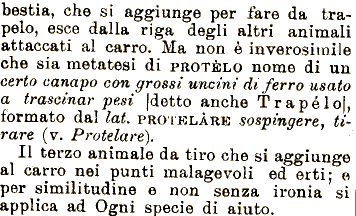 bestia, che si aggiunge per fare da tra-
pelo, esce dalla riga degli altri animali
attaccati al carro. Ma non è inverosimile
che sia metatesi di PROTÈLO nome di un
certo canapo con grossi uncini di ferro usato
a trascinar pesi |detto anche Trapélo|,
formato dal lat. PROTELÀRE sospingere, ti-
rare (v. Protelare).
Il terzo animale da tiro che si aggiunge
al carro nei punti malagevoli ed erti; e
per similitudine e non senza ironia si
applica ad Ogni specie di aiuto.